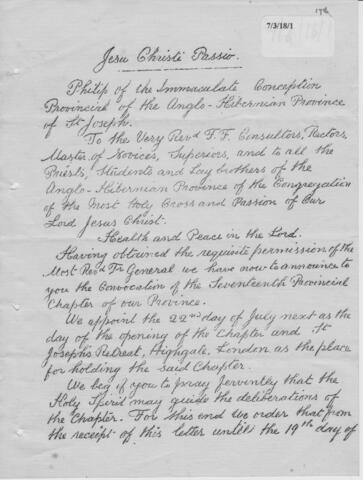 17a
7/3/18/1
Jesu Christi Passio.
Philip of the Immaculate Conception
Provincial of the Anglo-Hibernian Province
of St Joseph.
To the Very Revd F.F. Consultors, Rectors,
Master of Novices, Superiors, and to all the
Priests, Students and Lay brothers of the
Anglo-Hibernian Province of the Congregation
of the Most Holy Cross and Passion of Our
Lord Jesus Christ.
Health and Peace in the Lord.
Having obtained the requisite permission of the
Most Revd Fr General we have now to announce to
you the Convocation of the Seventeenth Provincial
Chapter of our Province.
We appoint the 22nd day of July next as the
day of the opening of the Chapter and St
Josephs Retreat, Highgate, London as the place
for holding the said Chapter.
We beg of you to pray fervently that the
Holy Spirit may guide the deliberations of
the Chapter. For this end we order that from
the receipt of this letter until the 19th day of